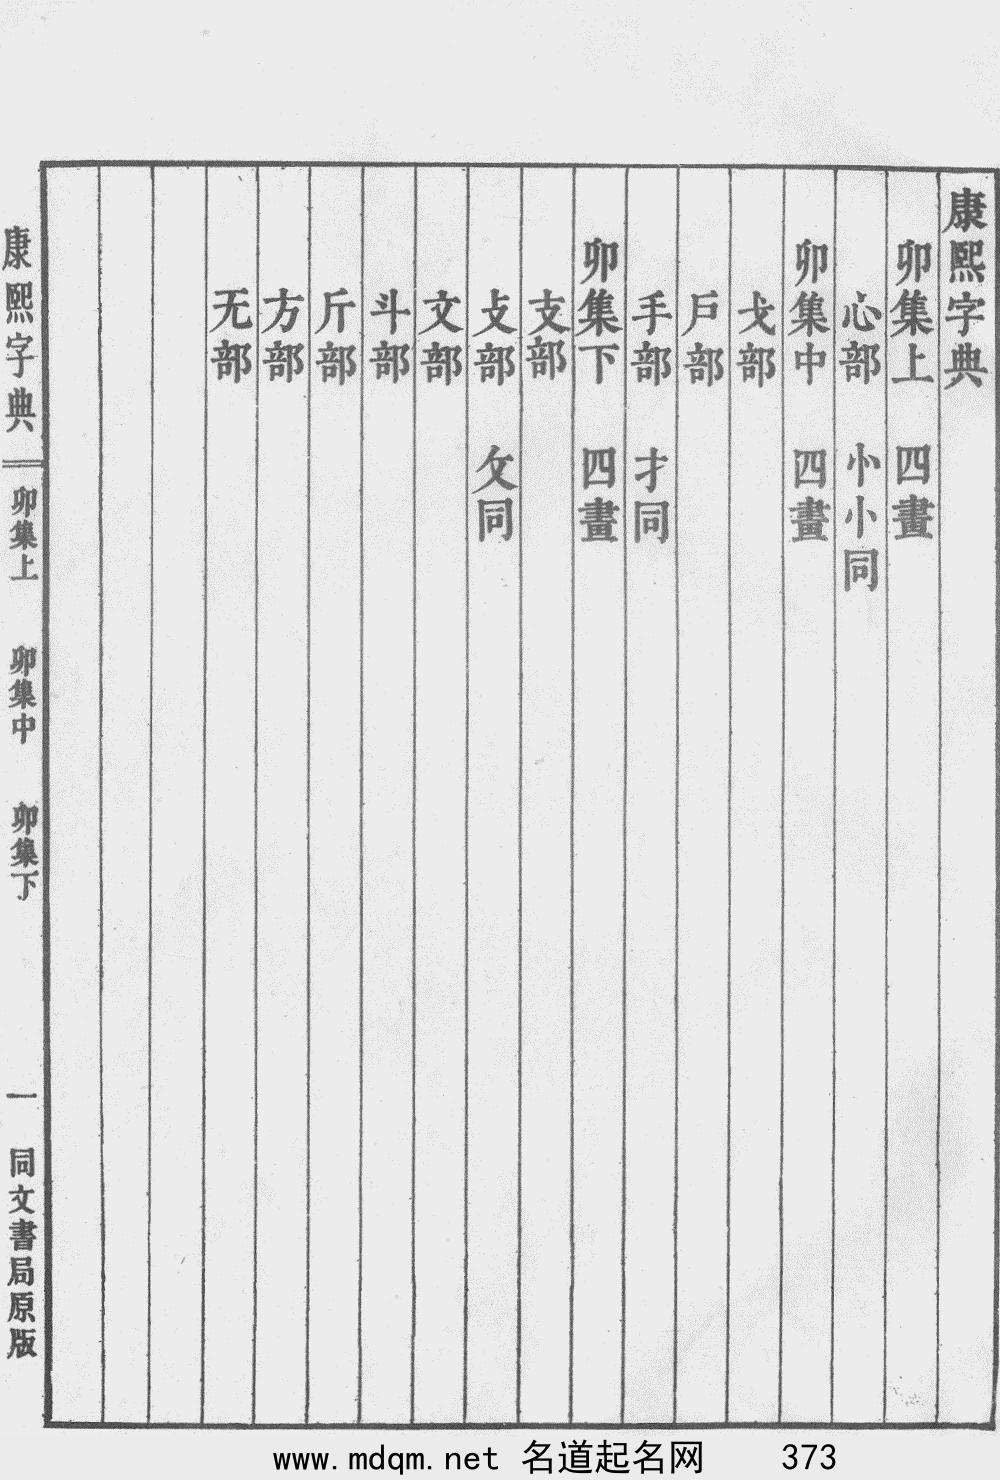 康熙字典
卯集上 四畫
心部 忄㣺同
卯集中 四畫
戈部
戶部
手部 扌同
卯集下 四畫
支部
攴部 攵同
文部
斗部
斤部
方部
无部
康熙字典 卯集上 卯集中 卯集下 一 同文書局原版
www.mdqm.net 名道起名网 373